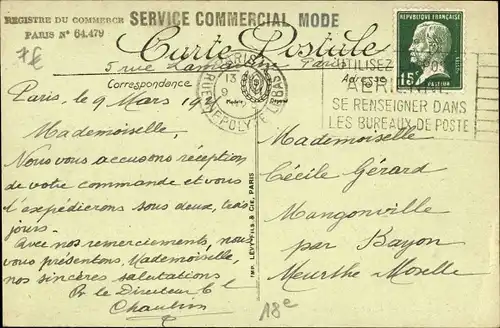 REGISTRE DU COMMERCE
PARIS N° 64.479
SERVICE COMMERCIAL MODE
7€
Carte Postale
5 rue Lamartine Paris
Correspondance
Adresse
PARIS
13
9
RUE HIPPOLYTE LEBAS
Modèle Déposé
UTILISEZ LA POSTE
AÉRIENNE
SE RENSEIGNER DANS
LES BUREAUX DE POSTE
RÉPUBLIQUE FRANÇAISE
15c
PASTEUR
Paris, le 9 Mars
Mademoiselle,
Nous vous accusons réception
de votre commande et vous
l'expédierons sous deux, trois
jours.
Avec nos remerciements, nous
vous présentons, Mademoiselle,
nos sincères salutations
Pr le Directeur
IMP. LÉVY FILS & Cie, PARIS
Mademoiselle
Cécile Gérard
Mangonville
par Bayon
Meurthe Moselle
18e